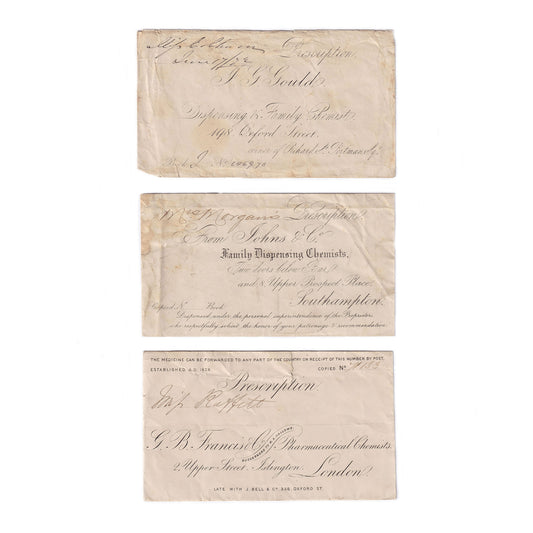 Prescription
June 17/
J. G. Gould
Dispensing & Family Chemist
198 Oxford Street.
corner of Richard St. Portman Sqre.
Book J No
Mrs Morgan's Prescription.
From Johns & Co.
Family Dispensing Chemists,
Two doors below Bar,
and 8 Upper Prospect Place.
Southampton.
Copied No Book
Dispensed under the personal superintendence of the Proprietor
who respectfully solicit the honor of your patronage & recommendation.
THE MEDICINE CAN BE FORWARDED TO ANY PART OF THE COUNTRY ON RECEIPT OF THIS NUMBER BY POST.
ESTABLISHED A.D. 1838. COPIED No
Prescription
Miss Raffett
G. B. Francis & Co. Pharmaceutical Chemists.
2, Upper Street, Islington, London.
LATE WITH J. BELL & CO. 338, OXFORD ST.